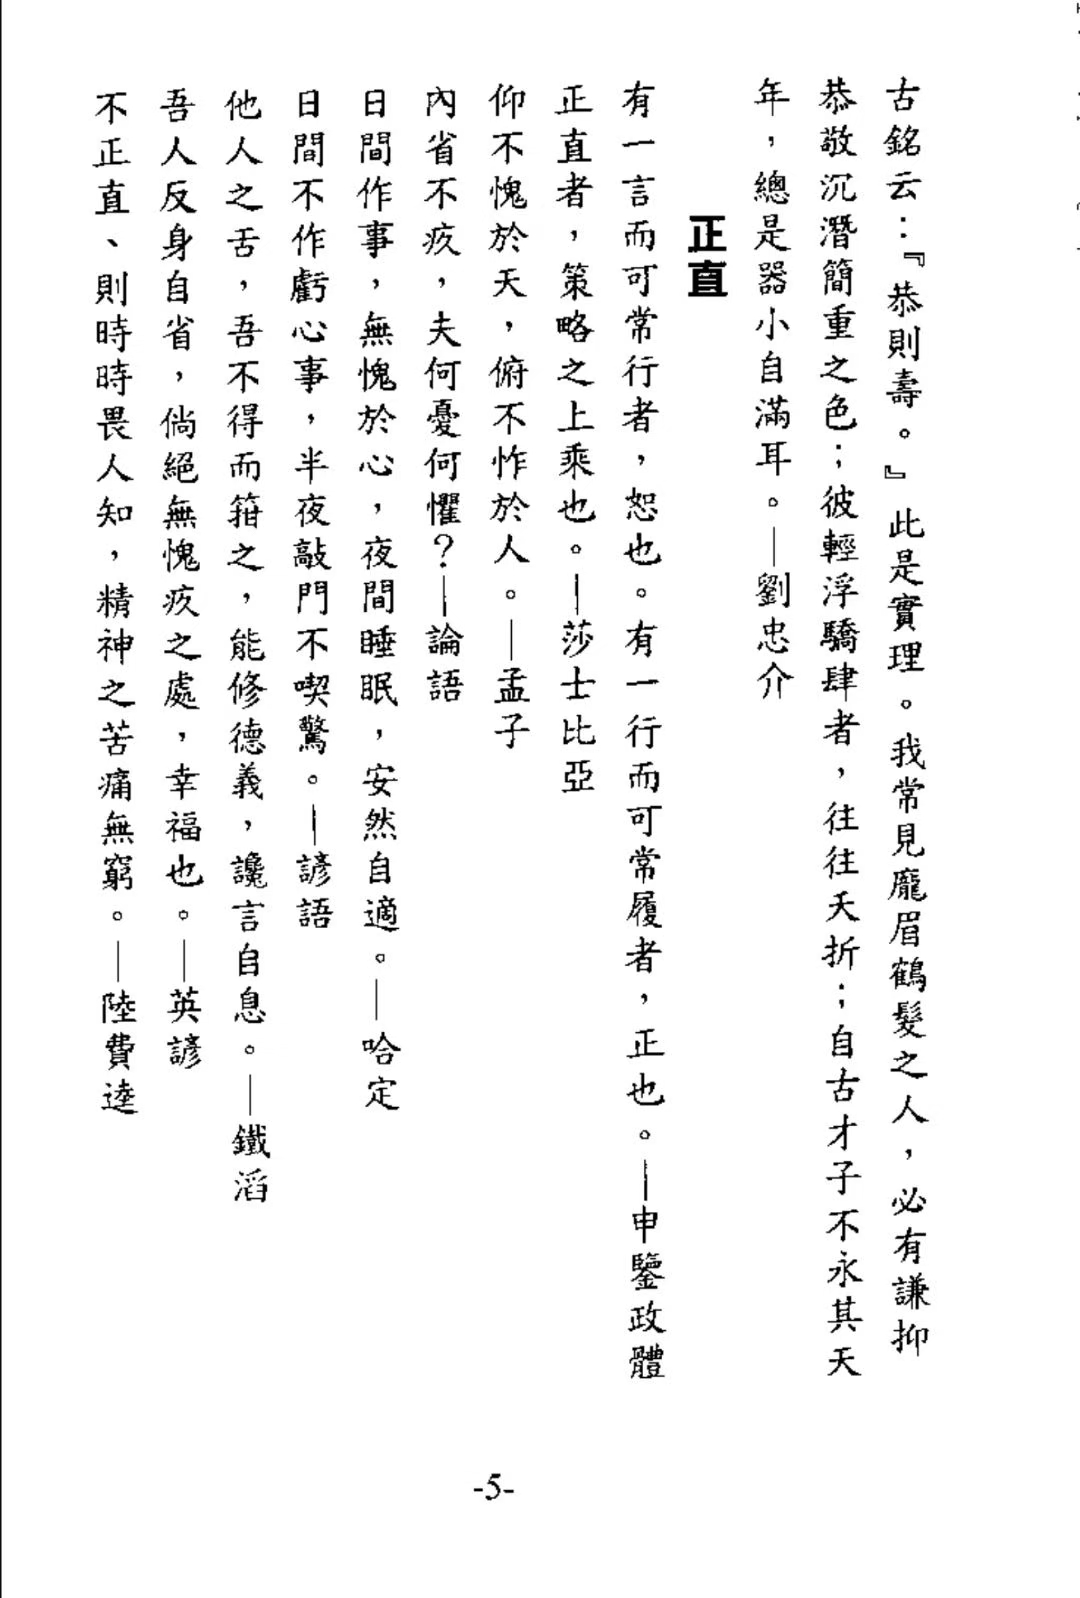 古銘云：『恭則壽。』此是實理。我常見龐眉鶴髮之人，必有謙抑
恭敬沉潛簡重之色；彼輕浮驕肆者，往往夭折；自古才子不永其天
年，總是器小自滿耳。—劉忠介
正直
有一言而可常行者，恕也。有一行而可常履者，正也。—申鑒政體
正直者，策略之上乘也。—莎士比亞
仰不愧於天，俯不怍於人。—孟子
內省不疚，夫何憂何懼？—論語
日間作事，無愧於心，夜間睡眠，安然自適。—哈定
日間不作虧心事，半夜敲門不喫驚。—諺語
他人之舌，吾不得而箝之，能修德義，讒言自息。—鐵滔
吾人反身自省，倘絕無愧疚之處，幸福也。—英諺
不正直、則時時畏人知，精神之苦痛無窮。—陸費逵
-5-